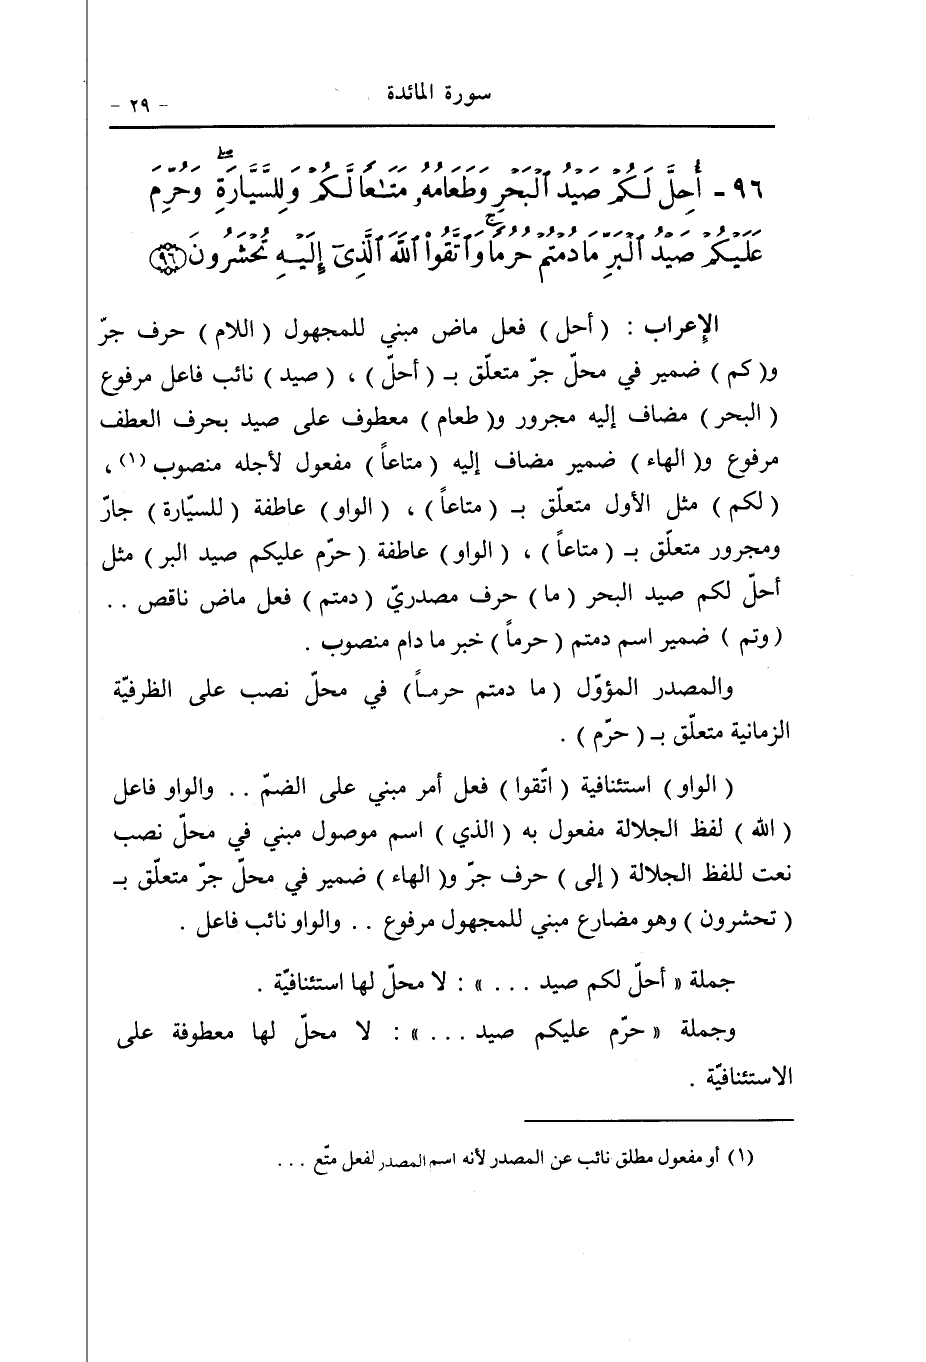 سورة المائدة
- ٢٩ -
٩٦ - أُحِلَّ لَكُمْ صَيْدُ ٱلْبَحْرِ وَطَعَامُهُۥ مَتَـٰعًا لَّكُمْ وَلِلسَّيَّارَةِ ۖ وَحُرِّمَ
عَلَيْكُمْ صَيْدُ ٱلْبَرِّ مَا دُمْتُمْ حُرُمًا ۗ وَٱتَّقُوا۟ ٱللَّهَ ٱلَّذِىٓ إِلَيْهِ تُحْشَرُونَ ﴿٩٦﴾
الإعراب : ( أحل ) فعل ماض مبني للمجهول ( اللام ) حرف جرّ
و( كم ) ضمير في محلّ جرّ متعلّق بـ ( أحلّ ) ، ( صيد ) نائب فاعل مرفوع
( البحر ) مضاف إليه مجرور و( طعام ) معطوف على صيد بحرف العطف
مرفوع و( الهاء ) ضمير مضاف إليه ( متاعاً ) مفعول لأجله منصوب (١) ،
( لكم ) مثل الأول متعلّق بـ ( متاعاً ) ، ( الواو ) عاطفة ( للسيّارة ) جارّ
ومجرور متعلّق بـ ( متاعاً ) ، ( الواو ) عاطفة ( حرّم عليكم صيد البر ) مثل
أحلّ لكم صيد البحر ( ما ) حرف مصدريّ ( دمتم ) فعل ماض ناقص . .
( وتم ) ضمير اسم دمتم ( حرماً ) خبر ما دام منصوب .
والمصدر المؤوّل ( ما دمتم حرماً ) في محلّ نصب على الظرفيّة
الزمانية متعلّق بـ ( حرّم ) .
( الواو ) استئنافية ( اتّقوا ) فعل أمر مبني على الضمّ . . والواو فاعل
( الله ) لفظ الجلالة مفعول به ( الذي ) اسم موصول مبني في محلّ نصب
نعت للفظ الجلالة ( إلى ) حرف جرّ و( الهاء ) ضمير في محلّ جرّ متعلّق بـ
( تحشرون ) وهو مضارع مبني للمجهول مرفوع . . والواو نائب فاعل .
جملة « أحلّ لكم صيد . . . » : لا محلّ لها استئنافيّة .
وجملة « حرّم عليكم صيد . . . » : لا محلّ لها معطوفة على
الاستئنافيّة .
(١) أو مفعول مطلق نائب عن المصدر لأنه اسم المصدر لفعل متّع . . .